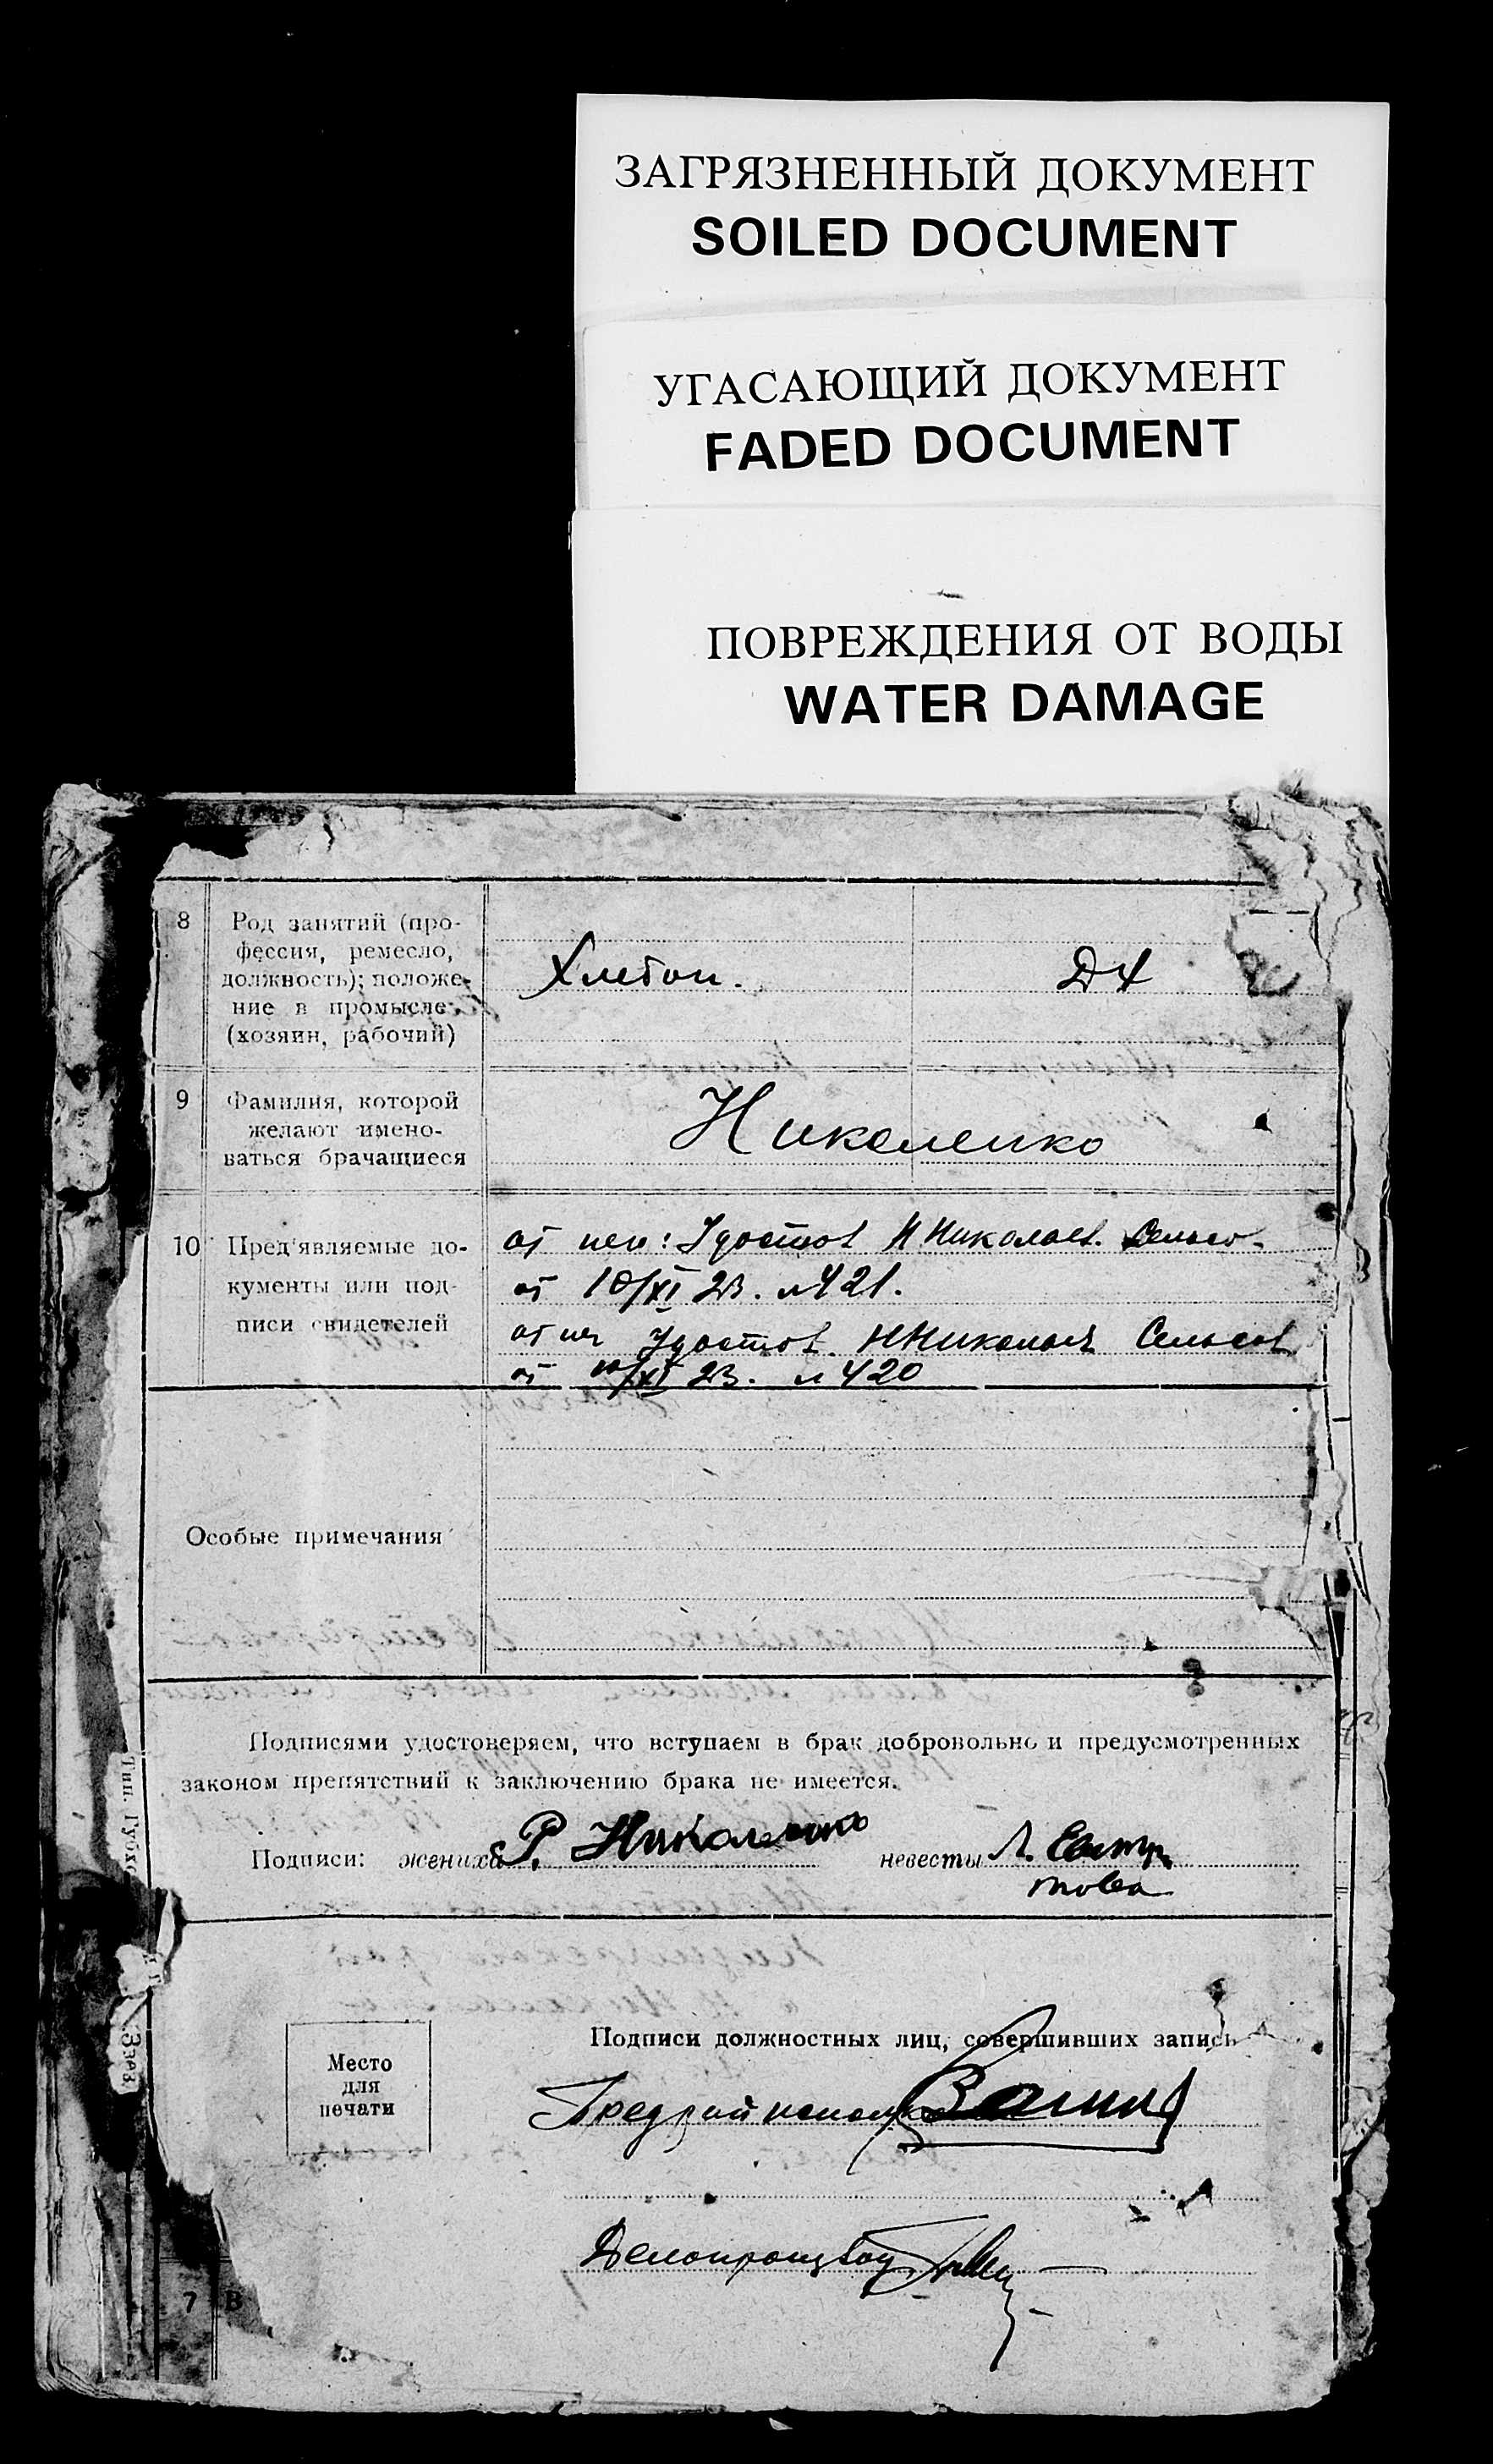 ЗАГРЯЗНЕННЫЙ ДОКУМЕНТ
SOILED DOCUMENT
УГАСАЮЩИЙ ДОКУМЕНТ
FADED DOCUMENT
ПОВРЕЖДЕНИЯ ОТ ВОДЫ
WATER DAMAGE
8
Род занятий (про-
фессия, ремесло,
должность); положе-
ние в промысле
(хозяин, рабочий)
Хлебоп.
ДХ
9
Фамилия, которой
желают имено-
ваться брачащиеся
Николенко
10
Пред'являемые до-
кументы или под-
писи свидетелей
от нея: Удостов Н Николаев. Сельсо-
от 10/XI 23. № 421.
от нея Удостов. Н Николаев Сельсов
от 10/XI 23. № 420
Особые примечания
Подписями удостоверяем, что вступаем в брак добровольно и предусмотренных
законом препятствий к заключению брака не имеется.
Подписи: жениха Р. Николенко
невесты
Место
для
печати
Подписи должностных лиц, совершивших запись
Пред
Делопроизвод
7
В